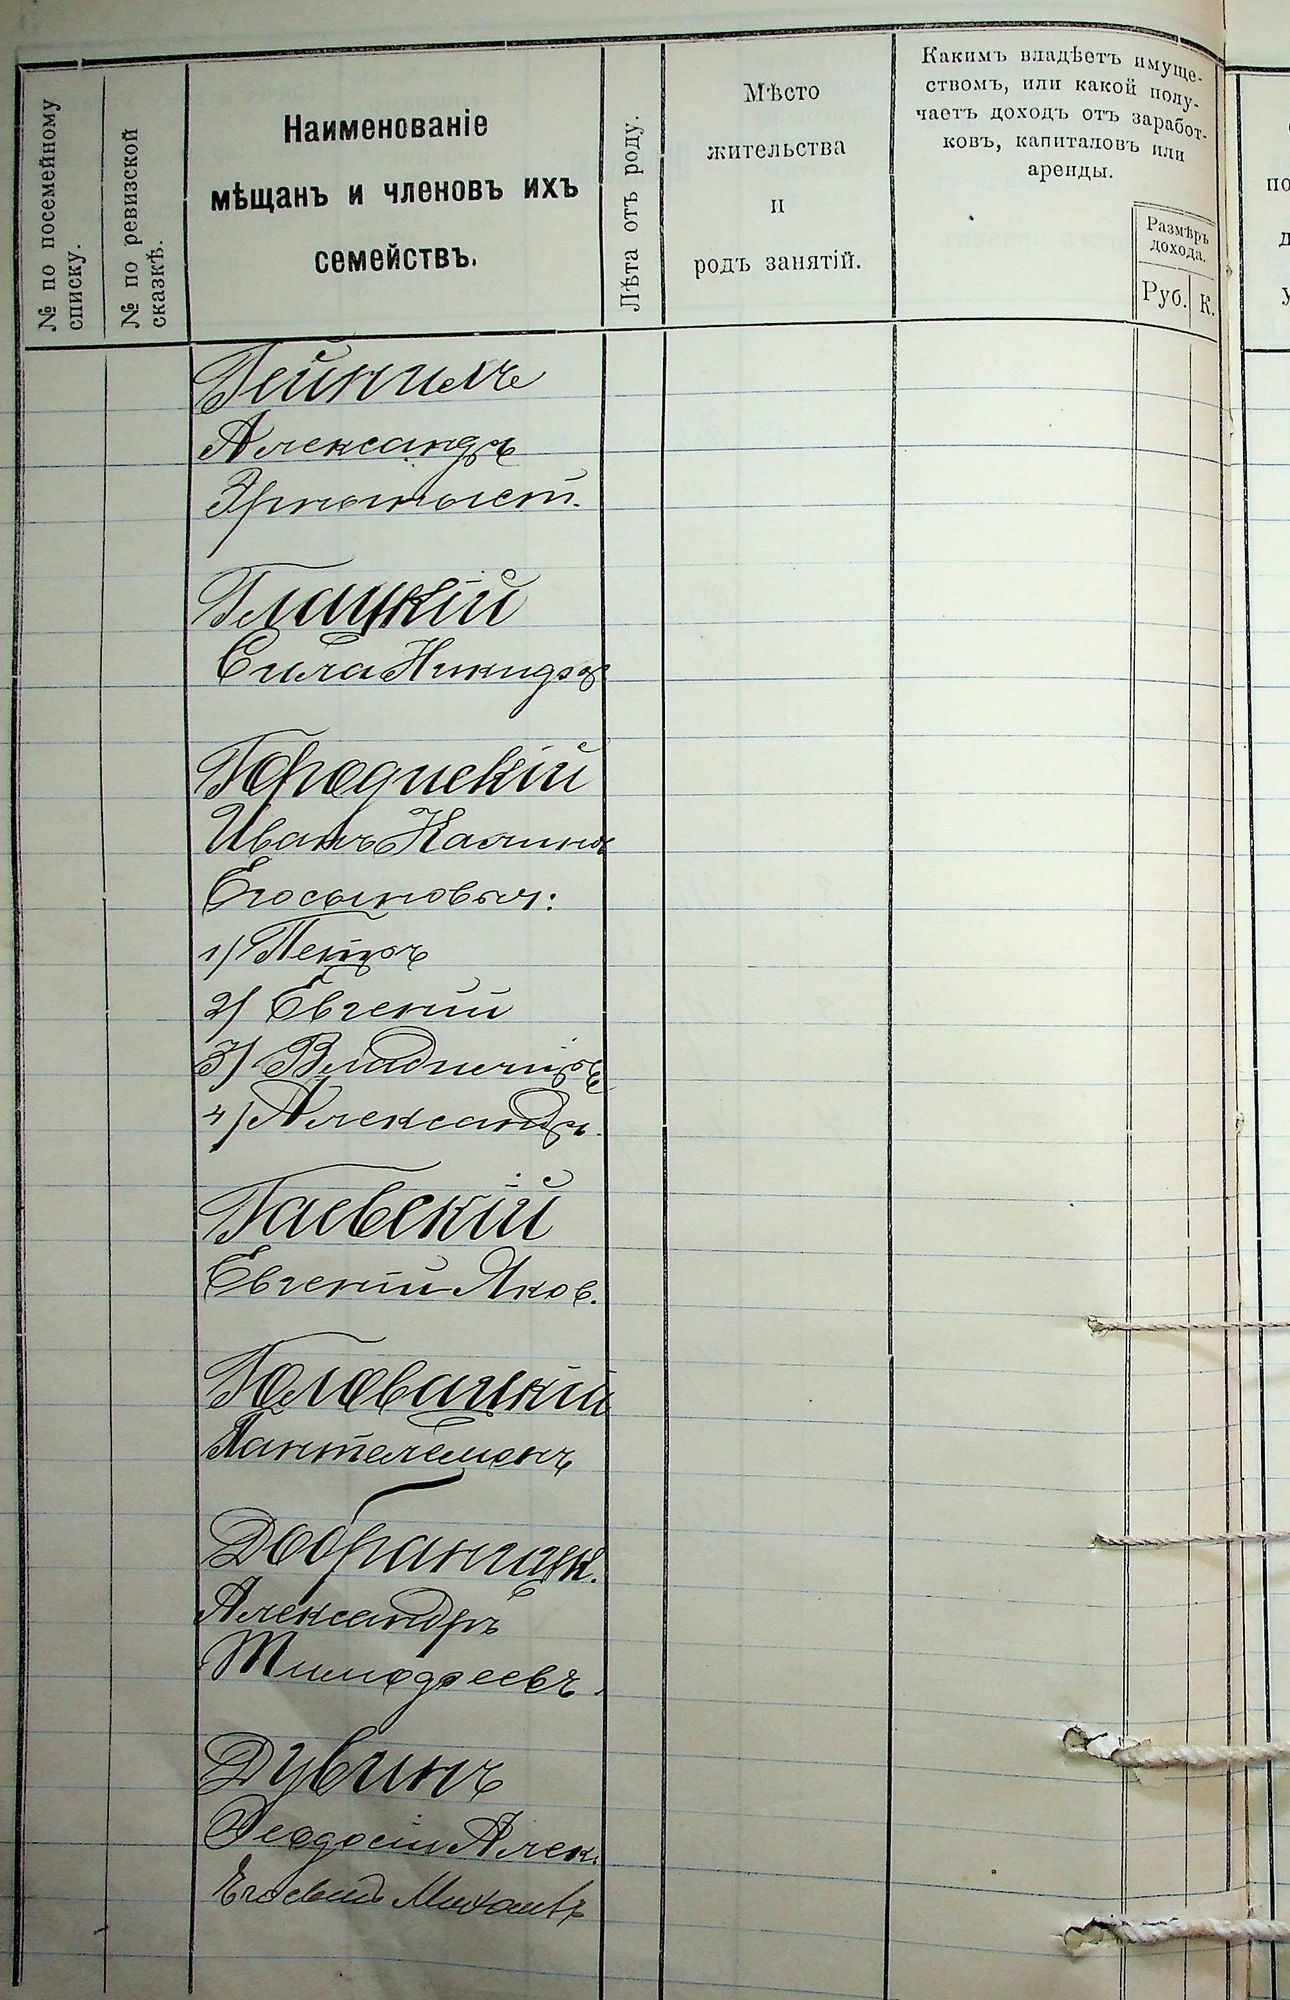 № по посемейному
списку.
№ по ревизской
сказкѣ.
Наименованіе
мѣщанъ и членовъ ихъ
семействъ.
Лѣта отъ роду.
Мѣсто
жительства
и
родъ занятій.
Какимъ владѣетъ имуще-
ствомъ, или какой полу-
чаетъ доходъ отъ заработ-
ковъ, капиталовъ или
аренды.
Размѣръ
дохода.
Руб.
К.
Александръ
Глацкій
Сила Никифор
Городискій
Иванъ Калинов
Его сыновья:
1) Петръ
2) Евгеній
3) Владиміръ
4) Александръ.
Гаевскій
Евгеній Яков.
Головацкій
Пантелемонъ
Добраницк.
Александръ
Тимофеевъ.
Дувинъ
Феодосій Алек.
Его сынъ Михаилъ